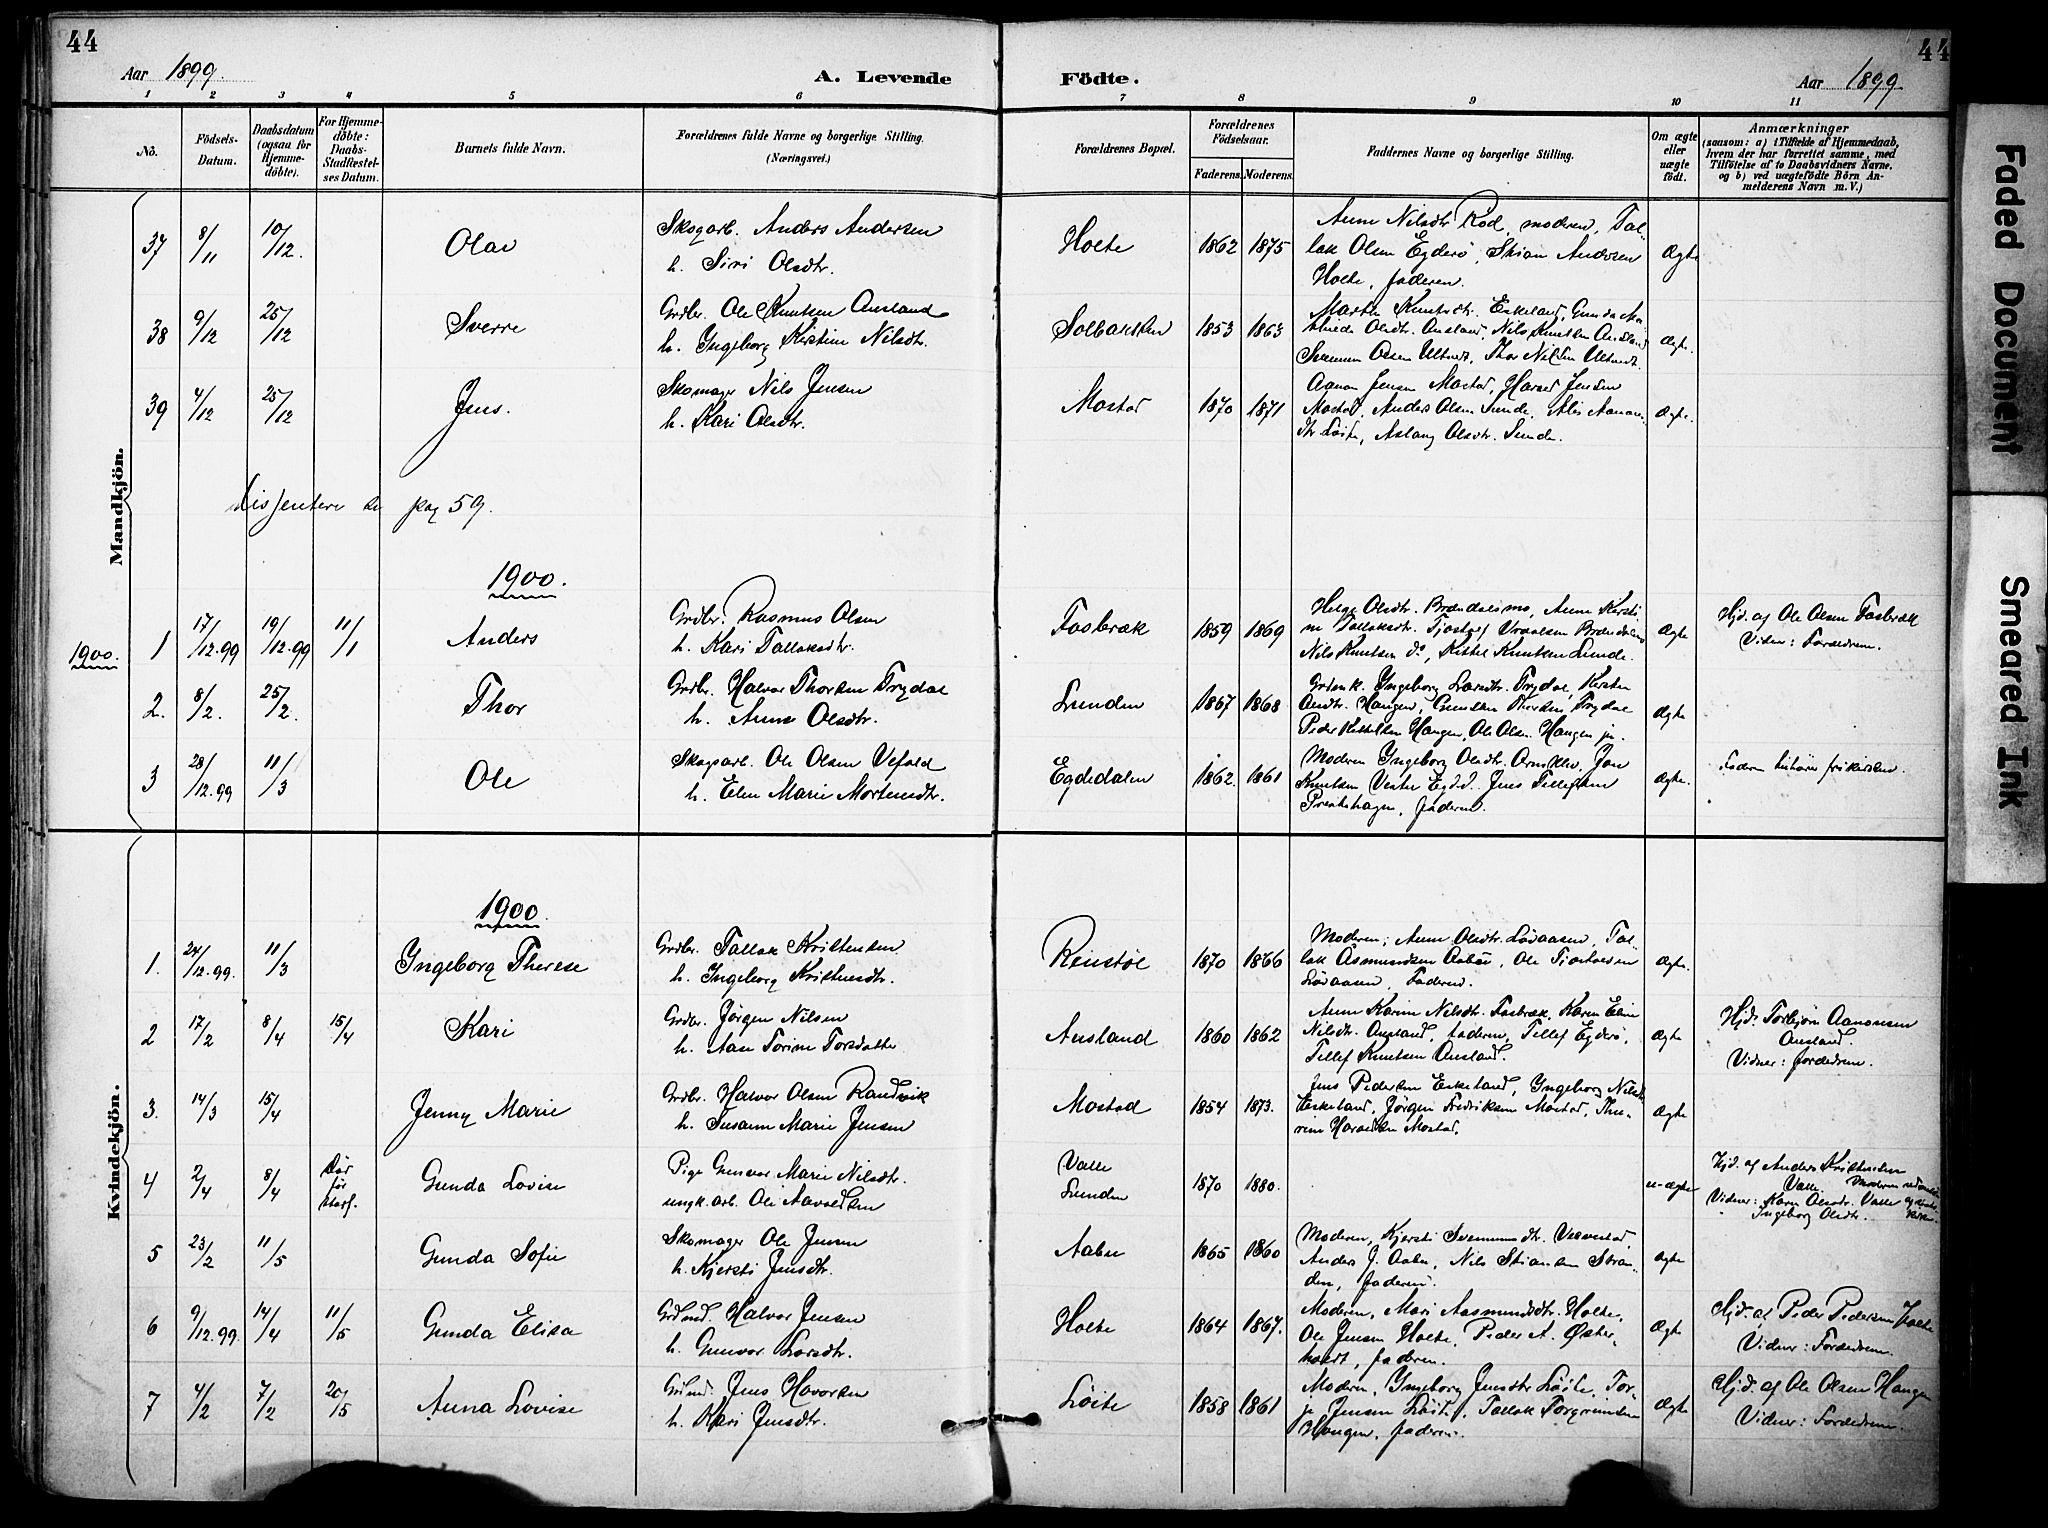 44
44
Aar 1899.
A. Levende Födte.
Aar 1899
1 2 3 4 5 6 7 8 9 10 11
No.
Födsels-Datum.
Daabsdatum (ogsaa for Hjemme-döbte).
For Hjemme-döbte: Daabs-Stadfæstel-ses Datum.
Barnets fulde Navn.
Forældrenes fulde Navne og borgerlige Stilling.
(Næringsvei.)
Forældrenes Bopæl.
Forældrenes Födselsaar.
Faderens. Moderens.
Faddernes Navne og borgerlige Stilling.
Om ægte eller uægte födt.
Anmærkninger
(saasom: a) i Tilfælde af Hjemmedaab, hvem der har forrettet samme, med Tilföielse af to Daabsvidners Navne, og b) ved uægtefödte Börn An-melderens Navn m. V.)
Mandkjön.
37 8/11 10/12. Olav
Skogarb. Anders Andersen
h. Siri Olsdtr.
Holte 1862 1875
Anne Nilsdtr Röd, moderen, Tal-
lak Olsen Egderö, Stian Andersen
Holte, faderen.
Ægte
38 9/12 25/12 Sverre
Grdbr. Ole Knutsen Ausland
h. Ingeborg Kirstine Nilsdtr.
Solbakken 1853 1863
Marthe Knutsdtr. Eskeland, Gunda Ma-
Olsdtr. Ausland, Nils Knutsen Ausland
Ægte.
39 4/12 25/12 Jens.
Skomager Nils Jensen
h. Kari Olsdtr.
Mostad 1870 1871
Aanon Jensen Mostad, Jensen
Mostad, Anders Olsen Sunde,
dtr Löite, Aslaug Olsdtr. Sunde.
Ægte.
pag 59.
1900.
1900.
1 17/12.99 19/12.99 11/1 Anders
Grdbr. Rasmus Olsen
h. Kari Tallaksdtr.
Fosbræk 1859 1869
Helge Olsdtr. Brændalsmo, Anne Kersti-
ne Tallaksdtr.
Nils Knutsen do, Kittel Knutsen Lunde.
Ægte
Hjd. af Ole Olsen Fosbræk
Vidner: Forældrene.
2. 8/2. 25/2. Thor
Grdbr. Halvor Thorsen Trydal
h. Anne Olsdtr.
Lunden 1867 1868
Ingeborg Larsdtr. Trydal, Kersten
Olsdtr. Haugen, Thorsen Trydal
Peder Kittelsen Haugen, Ole Olsen Haugen jr.
Ægte
3 28/12.99 11/3 Ole
Skogsarb. Ole Olsen Vefald
h. Elen Marie Mortensdtr.
Egdedalen 1862. 1861
Moderen Ingeborg Olsdtr. Jon
Knutsen Jens Tellefsen
Præsthagen, faderen.
Ægte.
Faderen tilhører frikirken.
Kvindekjön.
1900.
1. 24/12.99. 11/3 Ingeborg Therese
Grdbr. Tallak Kristensen
h. Ingeborg Kristensdtr.
Reinstöl 1870 1866
Moderen; Anne Olsdtr. Lövaasen, Tal-
lak Asmundsen Aabö, Ole
Lövaasen, Faderen.
Ægte.
2 17/2 8/4 15/4 Kari
Grdbr. Jörgen Nilsen
h. Aase Torine Torsdatter
Ausland 1860 1862
Anne Karine Nilsdtr. Fosbræk, Karen Eline
Nilsdtr. Ausland, faderen, Tellef Egderö,
Tellef Knutsen Ausland.
Ægte
Hjd. Torbjörn Aanonsen
Ausland.
Vidner: forældrene.
3. 14/3 15/4 Jenny Marie
Grdbr. Halvor Olsen Randvik
h. Susanne Marie Jensen
Mostad 1854 1873.
Jens Pedersen Eskeland, Ingeborg Nilsdtr
Eskeland, Jörgen Fredriksen Mostad,
Mostad.
Ægte
4 2/4 8/4
Gunda Lovise
Pige Gunvor Marie Nilsdtr.
ungk. arb. Ole Aavoldsen
Valle
Lunden 1870 1880.
u-ægte
Hjd. af Anders Kristensen
Valle.
Vidner: Karen Olsdtr. Valle og
Ingeborg Olsdtr.
5 23/2 11/5 Gunda Sofie
Skomager Ole Jensen
h. Kjersti Jensdtr.
Aabu 1865 1860
Moderen, Kjersti
Anders J. Aabu, Nils Stiansen Stran-
den, faderen.
ægte
6 9/12.99. 14/4 11/5 Gunda Elisa
Halvor Jensen
h. Gunvor Larsdtr.
Holte 1864 1867.
Moderen, Mari Aasmundsdtr. Holte,
Ole Jensen Holte, Peder A. Øster-
holdt, faderen.
Ægte
Hjd. af Peder Pedersen Holte
Vidner: Forældrene.
7 4/2 7/2 20/5 Anna Lovise
Jens Havorsen
h. Kari Jensdtr.
Löite 1858 1861
Moderen, Ingeborg Jensdtr Löite, Tor-
je Jensen Löite, Tallak Torgrimsen
Haugen, faderen.
Ægte
Hjd. af Ole Olsen Haugen
Vidner: Forældrene.
Faded Document
Smeared Ink